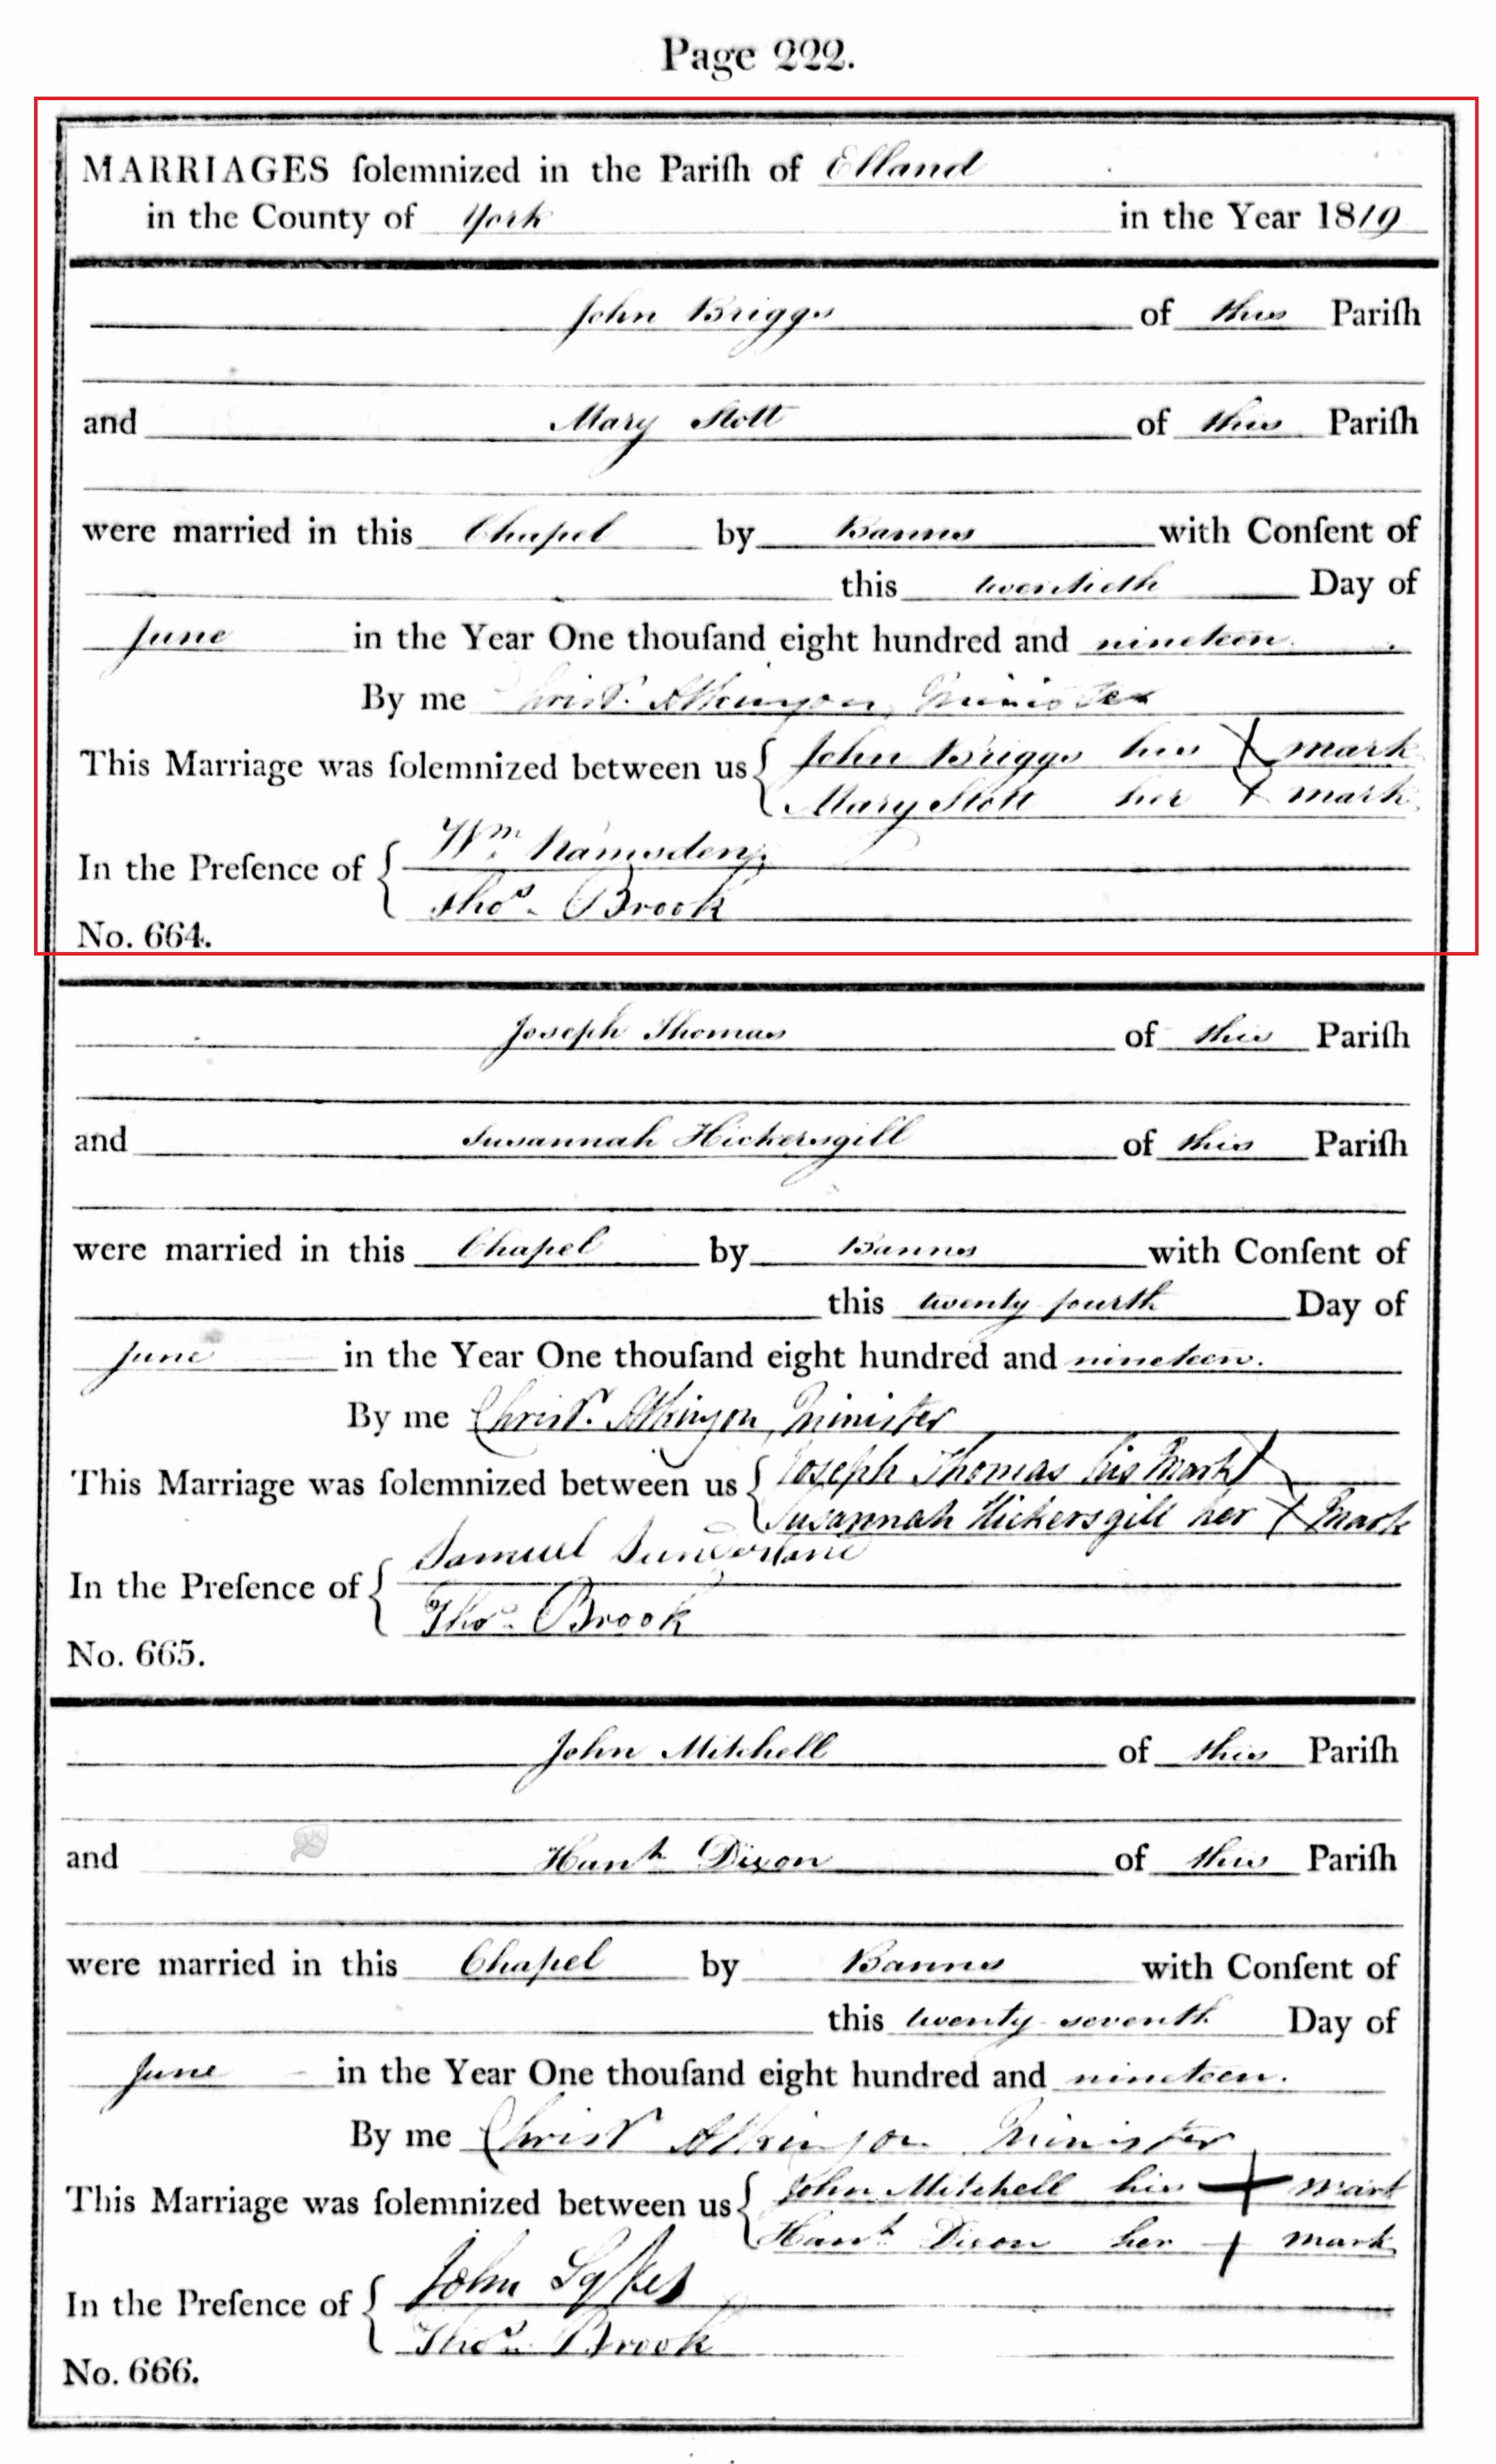 Page 222.
MARRIAGES ſolemnized in the Pariſh of Elland
in the County of York in the Year 1819
John Briggs of this Pariſh
and Mary Stott of this Pariſh
were married in this Chapel by Banns with Conſent of
this twentieth Day of
June in the Year One thouſand eight hundred and nineteen.
By me Christr. Atkinson, Minister
This Marriage was ſolemnized between us { John Briggs his X mark
Mary Stott her X mark
In the Preſence of { Wm. Ramsden,
Thos. Brook
No. 664.
Joseph Thomas of this Pariſh
and Susannah Hickersgill of this Pariſh
were married in this Chapel by Banns with Conſent of
this twenty fourth Day of
June in the Year One thouſand eight hundred and nineteen.
By me Christr. Atkinson, Minister
This Marriage was ſolemnized between us { Joseph Thomas his Mark X
Susannah Hickersgill her X Mark
In the Preſence of { Samuel Sunderland
Thos. Brook
No. 665.
John Mitchell of this Pariſh
and Hanh Dixon of this Pariſh
were married in this Chapel by Banns with Conſent of
this twenty seventh Day of
June in the Year One thouſand eight hundred and nineteen.
By me Christr Atkinson Minister
This Marriage was ſolemnized between us { John Mitchell his + mark
Hanh Dixon her + mark
In the Preſence of { John Sykes
Thos. Brook
No. 666.